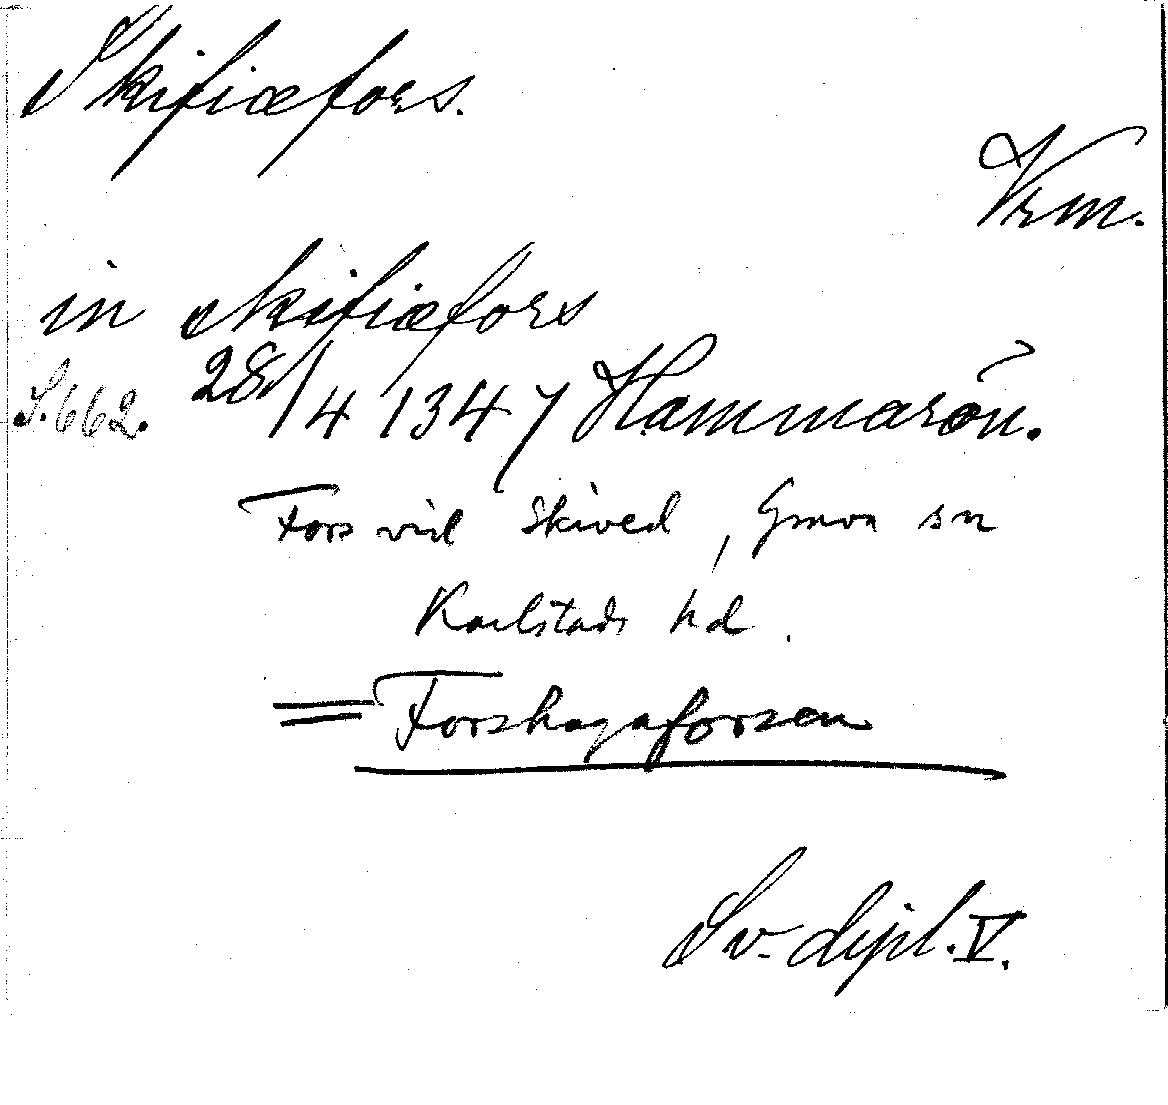 Skifiæfors.
Vrm.
in skifiæfors
S. 662. 28/4 1347 Hammarön.
Fors vid Skived, Grava sn
Karlstads hd.
= Forshagaforsen
Sv. dipl. V.